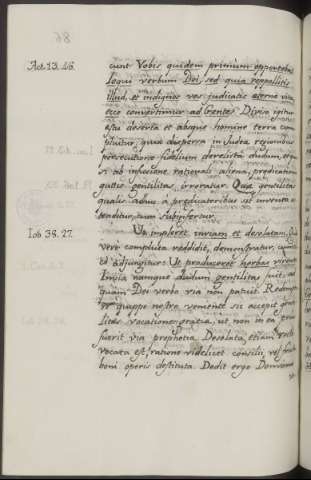 86
Act. 13. 46. cunt Vobis quidem primum opportebat
loqui verbum Dei, sed quia reppellitis
illud, et indignos vos judicatis æternæ vitæ
ecce convertimur ad Gentes. Dicio igitur
deserta et absque homine terra com
pluitur, quia dispersa in Judæa regionibus
persecutione fidelium derelicta dudum, ergo
si ab infusione rationis aliena, prædicationis
guttis gentilitas, irroratur. Quæ gentilitas
qualis adhuc a prædicatoribus sit inventa o
stenditur, tum subinfertur.
Iob 38. 27. Ut impleret inviam et desolatam. Quid
vero compluta reddidit, demonstratur, cum
ed adjungitur: Ut produceret herbas virentes
Invia namque dudum gentilitas fuit, ad
quam Dei verbo via non patuit. Redempto
re quippe nostro veniente sic accepit gen
tilitas vocationis gratiam, ut non in ea prius
fuerit via prophetiæ. Desolata, etiam recte
vocata est, ratione videlicet consilii, vel fructu
boni operis destituta. Dedit ergo Dominus